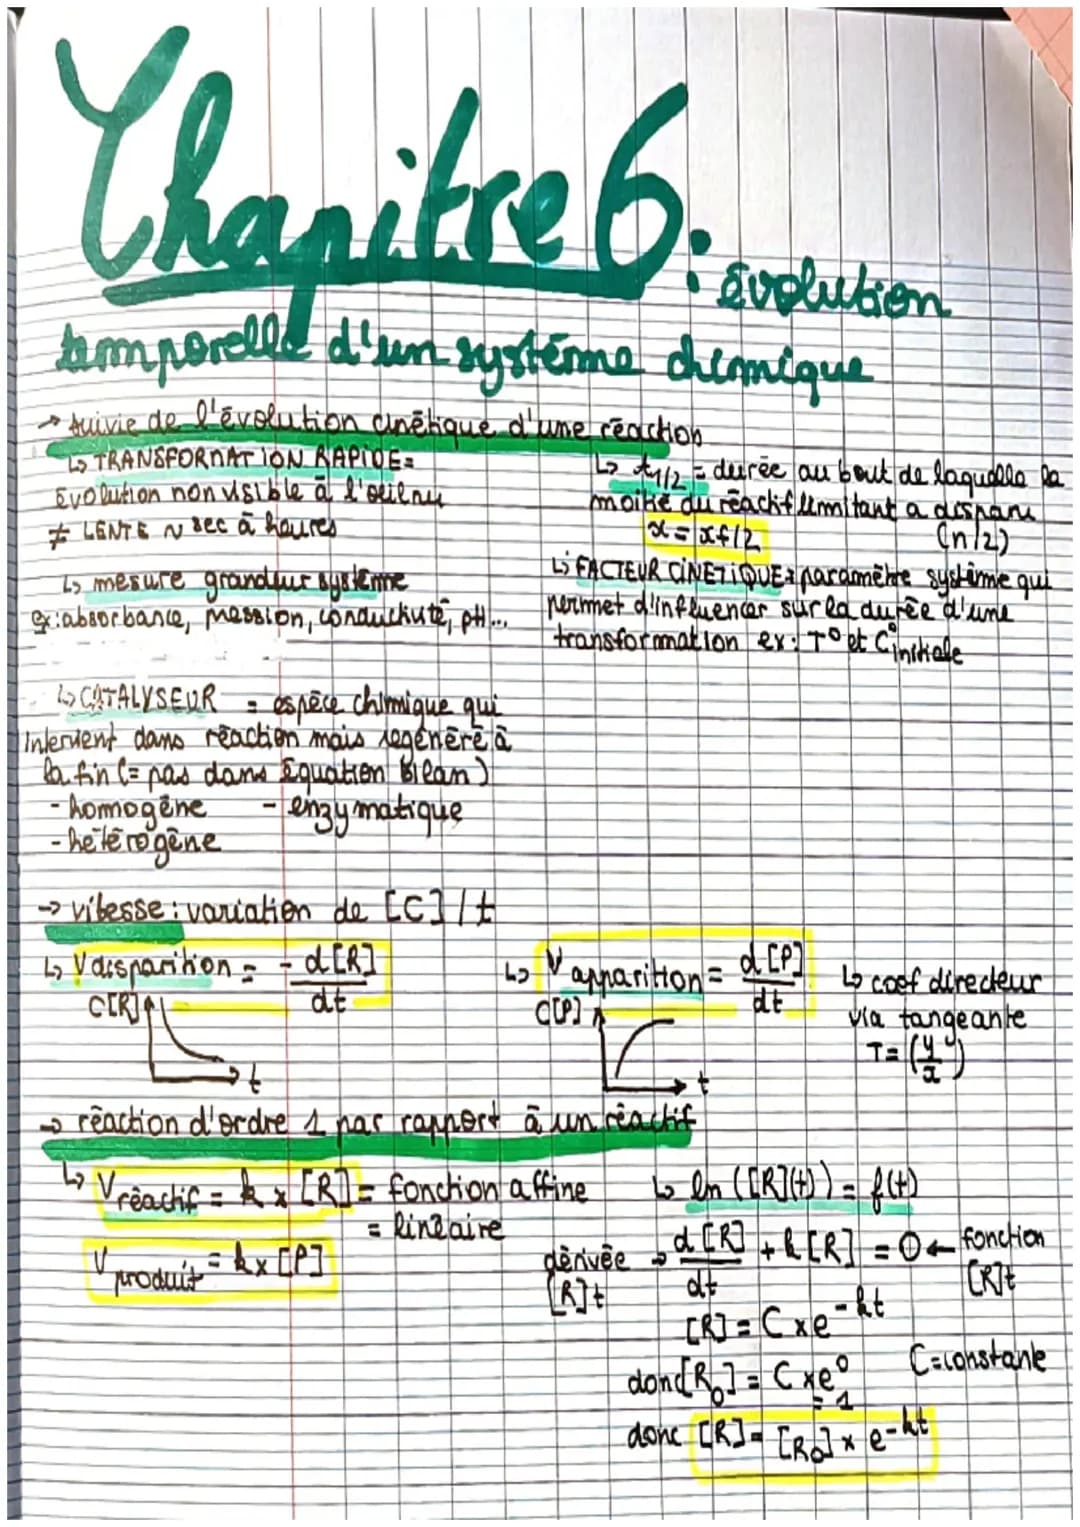 Chapitre 6: évolution
temporelle d'un système chimique
→ suivie de l'évolution cinétique d'une réaction
↳ TRANSFORMATION RAPIDE =
évolution non visible à l'œil nu
≠ LENTE ~ sec à heures
↳ mesure grandeur système
ex: absorbance, pression, conductivité, pH...
↳ t1/2 = durée au bout de laquelle la
moitié du réactif limitant a disparu
x = xf/2 (n/2)
↳ FACTEUR CINÉTIQUE = paramètre système qui
permet d'influencer sur la durée d'une
transformation ex: T° et C°initiale
↳ CATALYSEUR = espèce chimique qui
intervient dans réaction mais régénéré à
la fin (= pas dans Équation Bilan)
- homogène - enzymatique
- hétérogène
→ vitesse : variation de [C] / t
↳ V disparition = - d[R]/dt
C[R]
t
↳ V apparition = d[P]/dt
C[P]
t
↳ coef directeur
via tangeante
T = (y/x)
→ réaction d'ordre 1 par rapport à un réactif
↳ V réactif = k x [R] = fonction affine
= linéaire
V produit = k x [P]
↳ ln ([R](t)) = f(t)
dérivée [R]t → d[R]/dt + k[R] = 0 ← fonction [R]t
[R] = C x e^-kt
C = constante
donc [R0] = C x e^0
= 1
donc [R] = [R0] x e^-kt